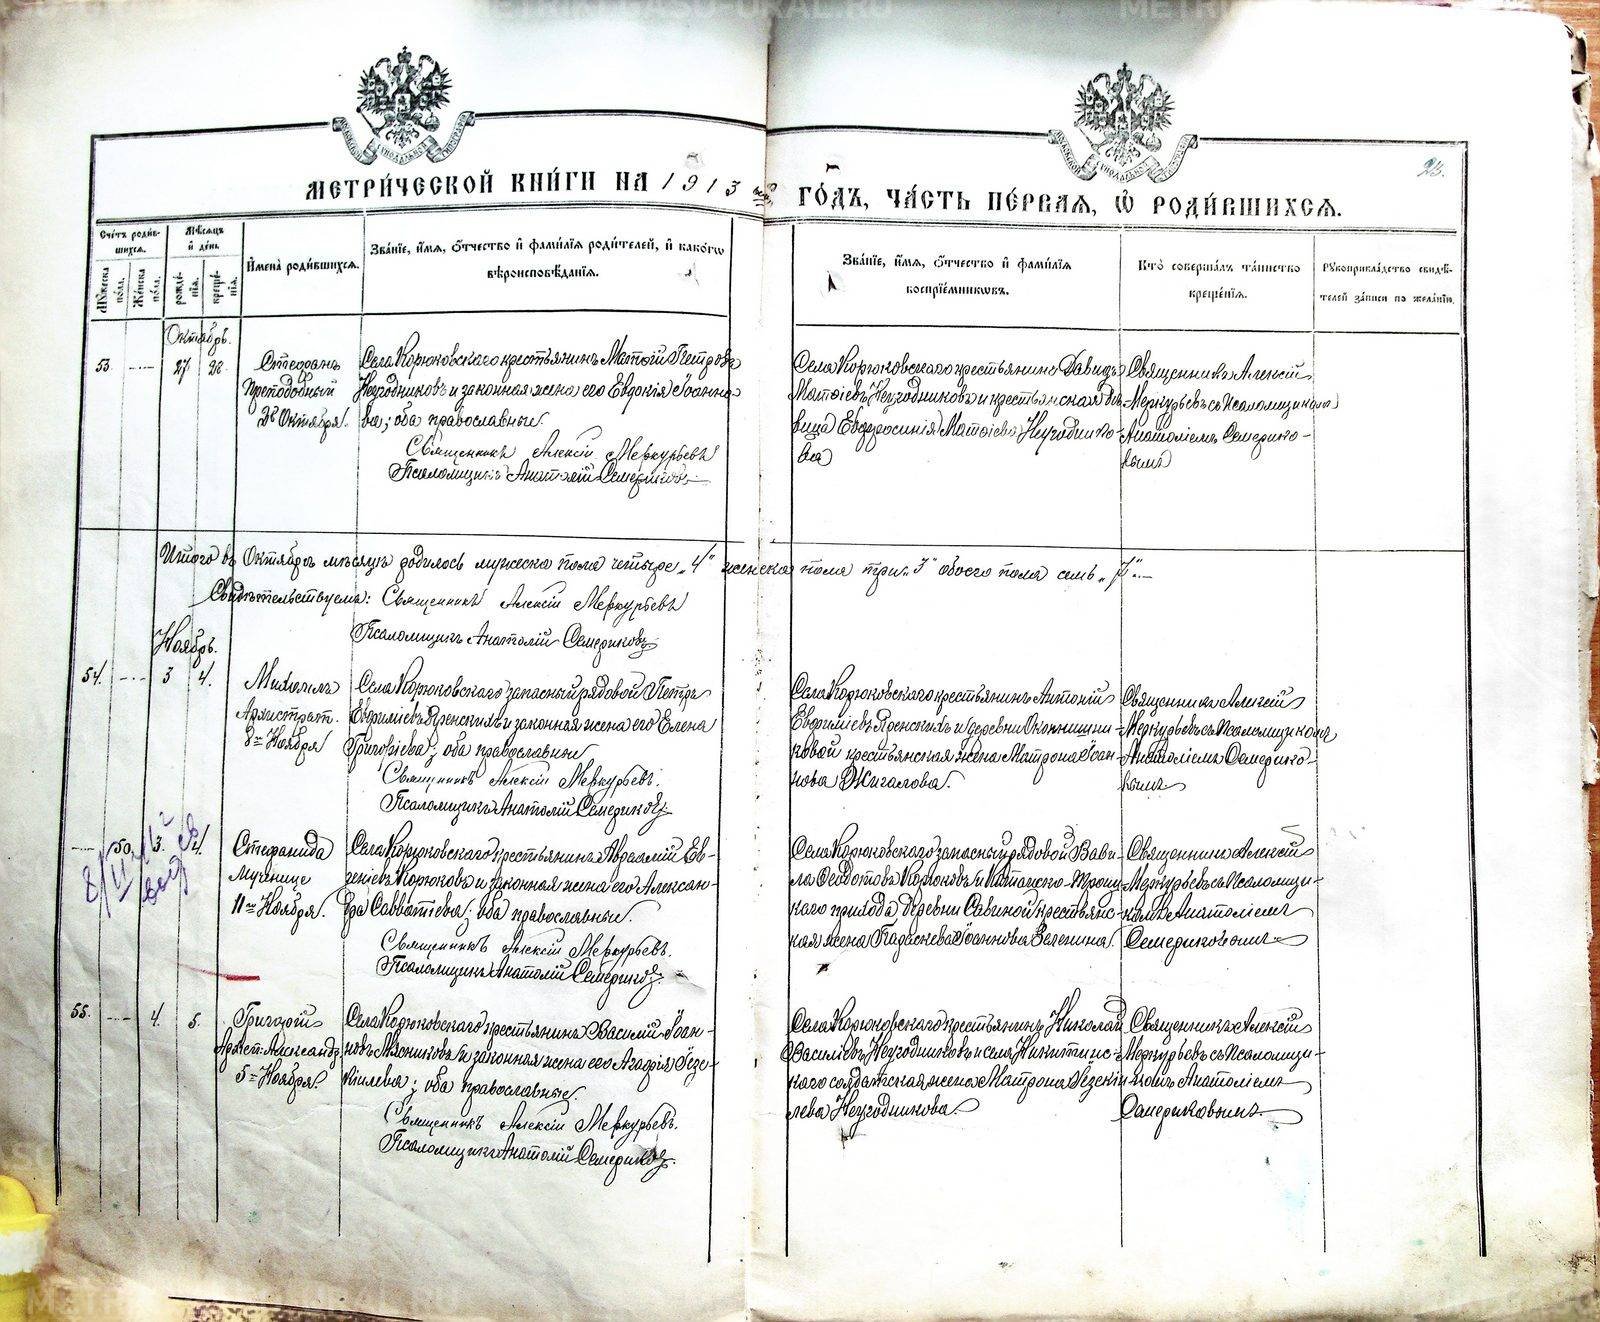 METRIKI.GASO-URAL.RU
METRIKI.GASO-URAL.RU
METRIKI.GASO-URAL.RU
МЕТРИ́ЧЕСКОЙ КНИ́ГИ НА 1913 ГО́ДЪ, ЧА́СТЬ ПЕ́РВАЯ, Ѡ РОДИ́ВШИХСЯ.
Сче́тъ роди́в-
шихся.
Му́жеска
по́ла.
Же́нска
по́ла.
Мѣ́сяцъ
и день
рожде́-
нія.
креще́-
нія.
Имена̀ роди́вшихся.
Зва́ніе, и́мя, ѻ́тчество и фами́лія роди́телей, и како́гѡ
вѣроисповѣ́данія.
Зва́ніе, и́мя, ѻ́тчество и фами́лія
воспріе́мникѡвъ.
Кто̀ соверша́лъ та́инство
креще́нія.
Рꙋкоприкла́дство свидѣ́-
телей за́писи по жела́нію.
Октябрь.
53. 27. 28.
Стефанъ
Преподобный
28 Октября.
Села Корюковскаго крестьянинъ Матѳій Петровъ
Неугодниковъ и законная жена его Евдокія Іоанно-
ва; оба православные.
Священникъ Алексій Меркурьевъ
Псаломщикъ Анатолій Семериковъ
Села Корюковскаго крестьянинъ Давидъ
Матѳіевъ Неугодниковъ и крестьянская дѣ-
вица Евфросинія Матѳіева Неугоднико-
ва
Священникъ Алексій
Меркурьевъ съ Псаломщикомъ
Анатоліемъ Семерико-
вымъ
Итого въ Октябрѣ мѣсяцѣ родилось мужеска пола четыре „4" женска пола три „3" обоего пола семь „7".
Свидѣтельствуемъ: Священникъ Алексій Меркурьевъ
Псаломщикъ Анатолій Семериковъ
Ноябрь.
54. 3 4.
Михаилъ
Архистрат.
8го Ноября
Села Корюковскаго запасный рядовой Петръ
Евфиміевъ Яренскихъ и законная жена его Елена
Григоріева; оба православные
Священникъ Алексій Меркурьевъ.
Псаломщикъ Анатолій Семериковъ.
Села Корюковскаго крестьянинъ Антоній
Евфиміевъ Яренскихъ и деревни
ковой крестьянская жена Матрона Іоан-
нова Жигалова.
Священникъ Алексій
Меркурьевъ съ Псаломщикомъ
Анатоліемъ Семерико-
вымъ
50. 3. 4.
Стефанида
Мученице
11го Ноября.
Села Корюковскаго крестьянинъ Авраамій Ев-
геніевъ Корюковъ и законная жена его Алексан-
дра Савватіева; оба православные.
Священникъ Алексій Меркурьевъ.
Псаломщикъ Анатолій Семериковъ.
Села Корюковскаго запасный рядовой Вави-
ла Ѳеодотовъ Корюковъ и Катайско-Троиц-
каго прихода деревни Савиной крестьянс-
кая жена Іоаннова Зеленина.
Священникъ Алексій
Меркурьевъ съ Псаломщи-
комъ Анатоліемъ
Семериковымъ
55. 4. 5.
Григорій
Александр.
5го Ноября.
Села Корюковскаго крестьянинъ Василій Іоан-
новъ Мясниковъ и законная жена его Агафія Іезе-
кіилева; оба православные.
Священникъ Алексій Меркурьевъ.
Псаломщикъ Анатолій Семериковъ.
Села Корюковскаго крестьянинъ Николай
Васильевъ Неугодниковъ и села Никитинс-
каго солдатская жена Матрона Іезекіи-
лева Неугодникова.
Священникъ Алексій
Меркурьевъ съ Псаломщи-
комъ Анатоліемъ
Семериковымъ.
METRIKI.GASO-URAL.RU